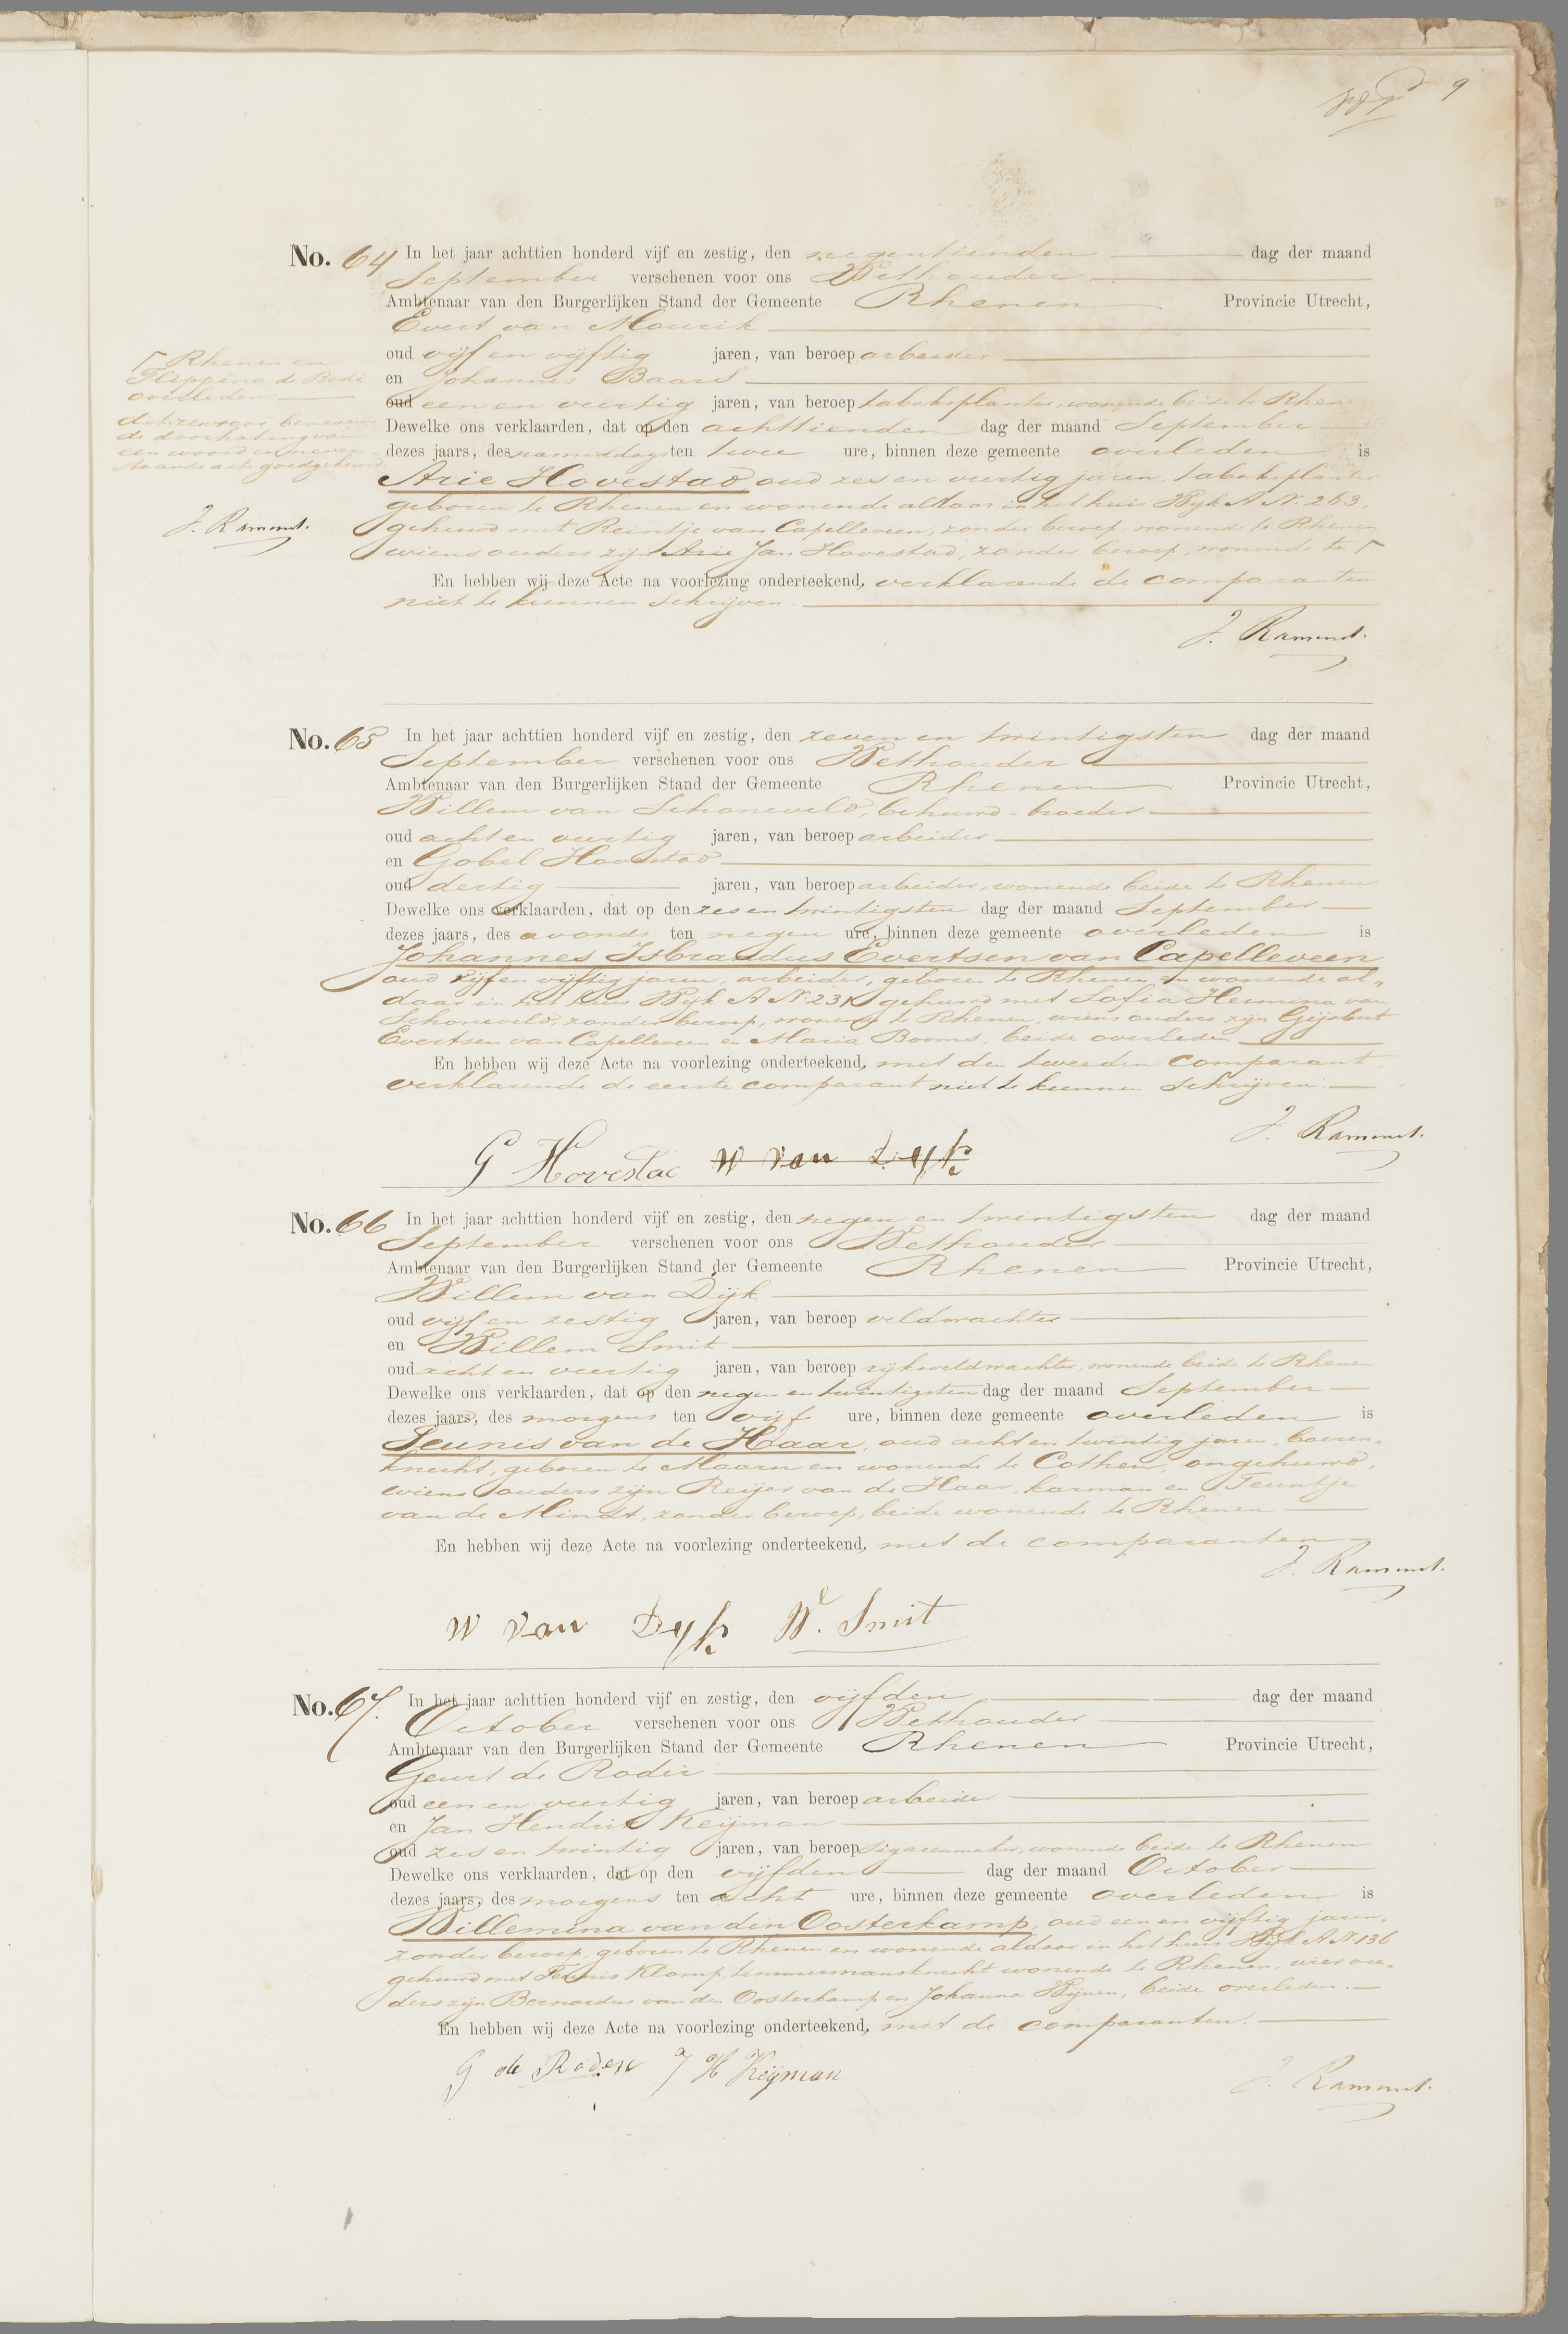 9
No. 64 In het jaar achttien honderd vijf en zestig, den negentienden dag der maand
September verschenen voor ons Wethouder
Ambtenaar van den Burgerlijken Stand der Gemeente Rhenen Provincie Utrecht,
Evert van Mourik
oud vijf en vijftig jaren, van beroep arbeider
en Johannes Baars
oud een en veertig jaren, van beroep tabaksplanter, wonende beide te Rhenen
Dewelke ons verklaarden, dat op den achttienden dag der maand September
dezes jaars, des namiddags ten twee ure, binnen deze gemeente overleden is
Arie Hovestad, oud zes en veertig jaren, tabaksplanter
geboren te Rhenen en wonende aldaar in het huis Wijk A No. 263,
gehuwd met Reintje van Capelleveen, zonder beroep, wonende te Rhenen
wiens ouders zijn Arie Jan Hovestad, zonder beroep, wonende te Γ
Γ Rhenen en
Flippina de Bode
overleden
deze renvooi, benevens
de doorhaling van
een woord in neven
staande acte goedgekeurd.
J. Rammet.
En hebben wij deze Acte na voorlezing onderteekend, verklarende de comparanten
niet te kunnen schrijven.
J. Rammet.
No. 65 In het jaar achttien honderd vijf en zestig, den zeven en twintigsten dag der maand
September verschenen voor ons Wethouder
Ambtenaar van den Burgerlijken Stand der Gemeente Rhenen Provincie Utrecht,
Willem van Schoneveld, behuwd-broeder
oud acht en veertig jaren, van beroep arbeider
en Gobel Hovestad
oud dertig jaren, van beroep arbeider, wonende beide te Rhenen
Dewelke ons verklaarden, dat op den zes en twintigsten dag der maand September
dezes jaars, des avonds ten negen ure, binnen deze gemeente overleden is
Johannes Isbrandus Evertsen van Capelleveen
oud vijf en vijftig jaren, arbeider, geboren te Rhenen en wonende al„
daar in het huis Wijk A No. 231 gehuwd met Sofia Hermina van
Schoneveld, zonder beroep, wonende te Rhenen, wiens ouders zijn Gijsbert
Evertsen van Capelleveen en Maria Booms, beide overleden
En hebben wij deze Acte na voorlezing onderteekend, met den tweeden comparant
verklarende de eerste comparant niet te kunnen schrijven.
J. Rammet.
G Hovestad W van Dyk
No. 66 In het jaar achttien honderd vijf en zestig, den negen en twintigsten dag der maand
September verschenen voor ons Wethouder
Ambtenaar van den Burgerlijken Stand der Gemeente Rhenen Provincie Utrecht,
Willem van Dijk
oud vijf en zestig jaren, van beroep veldwachter
en Willem Smit
oud acht en veertig jaren, van beroep rijksveldwachter, wonende beide te Rhenen
Dewelke ons verklaarden, dat op den negen en twintigsten dag der maand September
dezes jaars, des morgens ten vijf ure, binnen deze gemeente overleden is
Teunis van de Haar, oud acht en twintig jaren, boeren„
knecht, geboren te Maarn en wonende te Cothen, ongehuwd,
wiens ouders zijn Reijer van de Haar, karman en Teuntje
van de Mindt, zonder beroep, beide wonende te Rhenen
En hebben wij deze Acte na voorlezing onderteekend, met de comparanten
J. Rammet.
W van Dyk W. Smit
No. 67. In het jaar achttien honderd vijf en zestig, den vijfden dag der maand
October verschenen voor ons Wethouder
Ambtenaar van den Burgerlijken Stand der Gemeente Rhenen Provincie Utrecht,
Geurt de Roder
oud een en veertig jaren, van beroep arbeider
en Jan Hendrik Keijman
oud zes en twintig jaren, van beroep sigarenmaker, wonende beide te Rhenen
Dewelke ons verklaarden, dat op den vijfden dag der maand October
dezes jaars, des morgens ten acht ure, binnen deze gemeente overleden is
Willemina van den Oosterkamp, oud een en vijftig jaren,
zonder beroep, geboren te Rhenen en wonende aldaar in het huis Wijk A No. 136
gehuwd met Teunis Klomp, timmermansknecht wonende te Rhenen, wier ou„
ders zijn Bernardus van den Oosterkamp en Johanna Wijnen, beide overleden.
En hebben wij deze Acte na voorlezing onderteekend, met de comparanten.
G de Roder J H Keijman
J. Rammet.